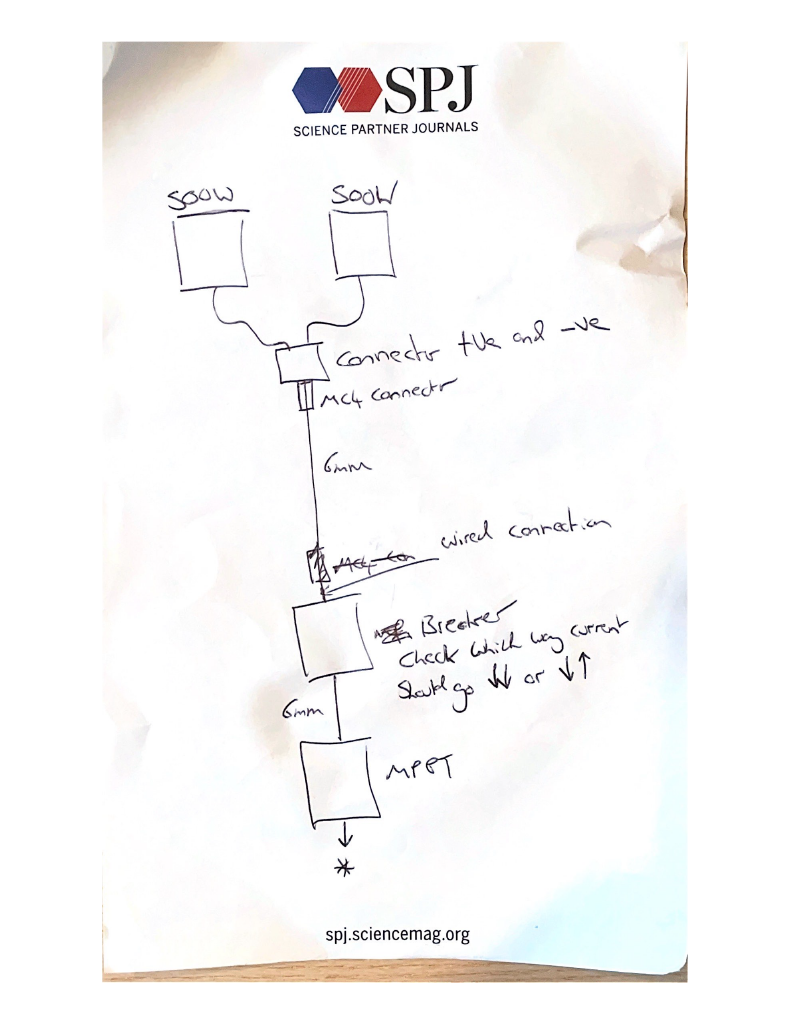 SPJ
SCIENCE PARTNER JOURNALS
500W
500W
Connector +ve and -ve
MC4 Connector
6mm
wired connection
MC4 Con
Breaker
Check which way current
Should go ↓↓ or ↓↑
6mm
MPPT
↓
*
spj.sciencemag.org